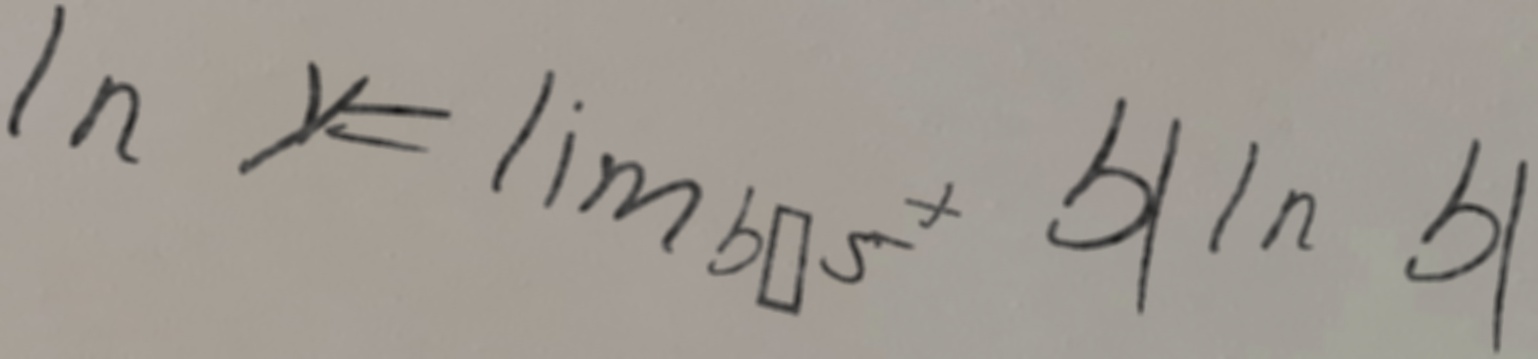 ln y = lim b▯5⁺ b| ln b|